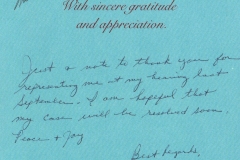 With sincere gratitude
and appreciation.
Just a note to thank you for
representing me at my hearing last
September. I am hopeful that
my case will be resolved soon.
Peace & Joy
Best Regards,